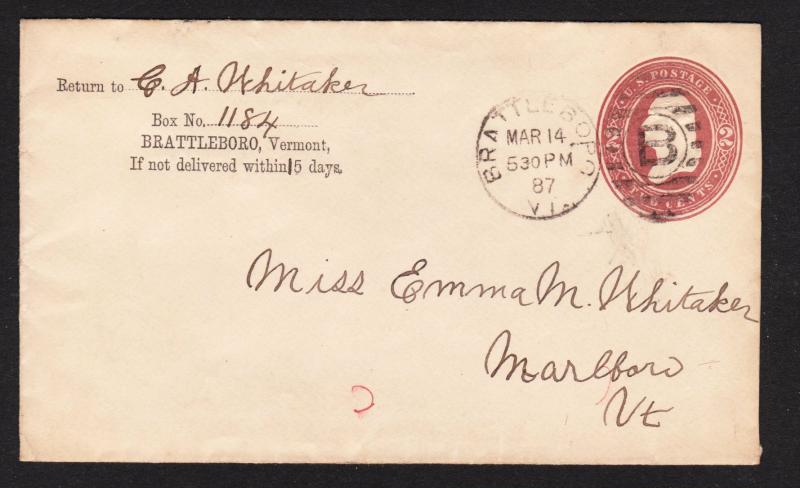 Return to C. A. Whitaker
Box No. 1184
BRATTLEBORO, Vermont,
If not delivered within 15 days.
BRATTLEBORO
MAR 14
530 PM
87
VT
U.S. POSTAGE
2 2
B
CENTS
Miss Emma M. Whitaker
Marlboro
Vt